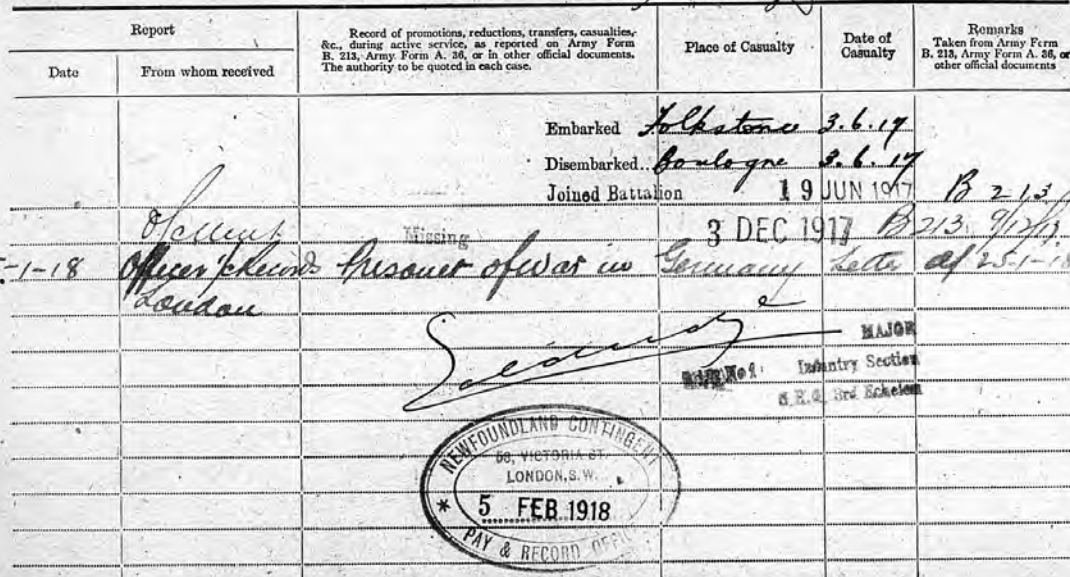 Report
Record of promotions, reductions, transfers, casualties,
&c., during active service, as reported on Army Form
B. 213, Army Form A. 36, or in other official documents.
The authority to be quoted in each case.
Place of Casualty
Date of
Casualty
Remarks
Taken from Army Form
B. 213, Army Form A. 36, or
other official documents
Date
From whom received
Embarked Folkstone 3.6.17
Disembarked.. Boulogne 3.6.17
Joined Battalion 19 JUN 1917 B 213
Missing 3 DEC 1917 B213 9/12/17
-1-18 Officer i/c Records Prisoner of War in Germany Letter df 25-1-18
London
MAJOR
No 1 Infantry Section
3rd Echelon
NEWFOUNDLAND CONTINGENT
58, VICTORIA ST.
LONDON, S.W.
5 FEB 1918
* PAY & RECORD OFFICE